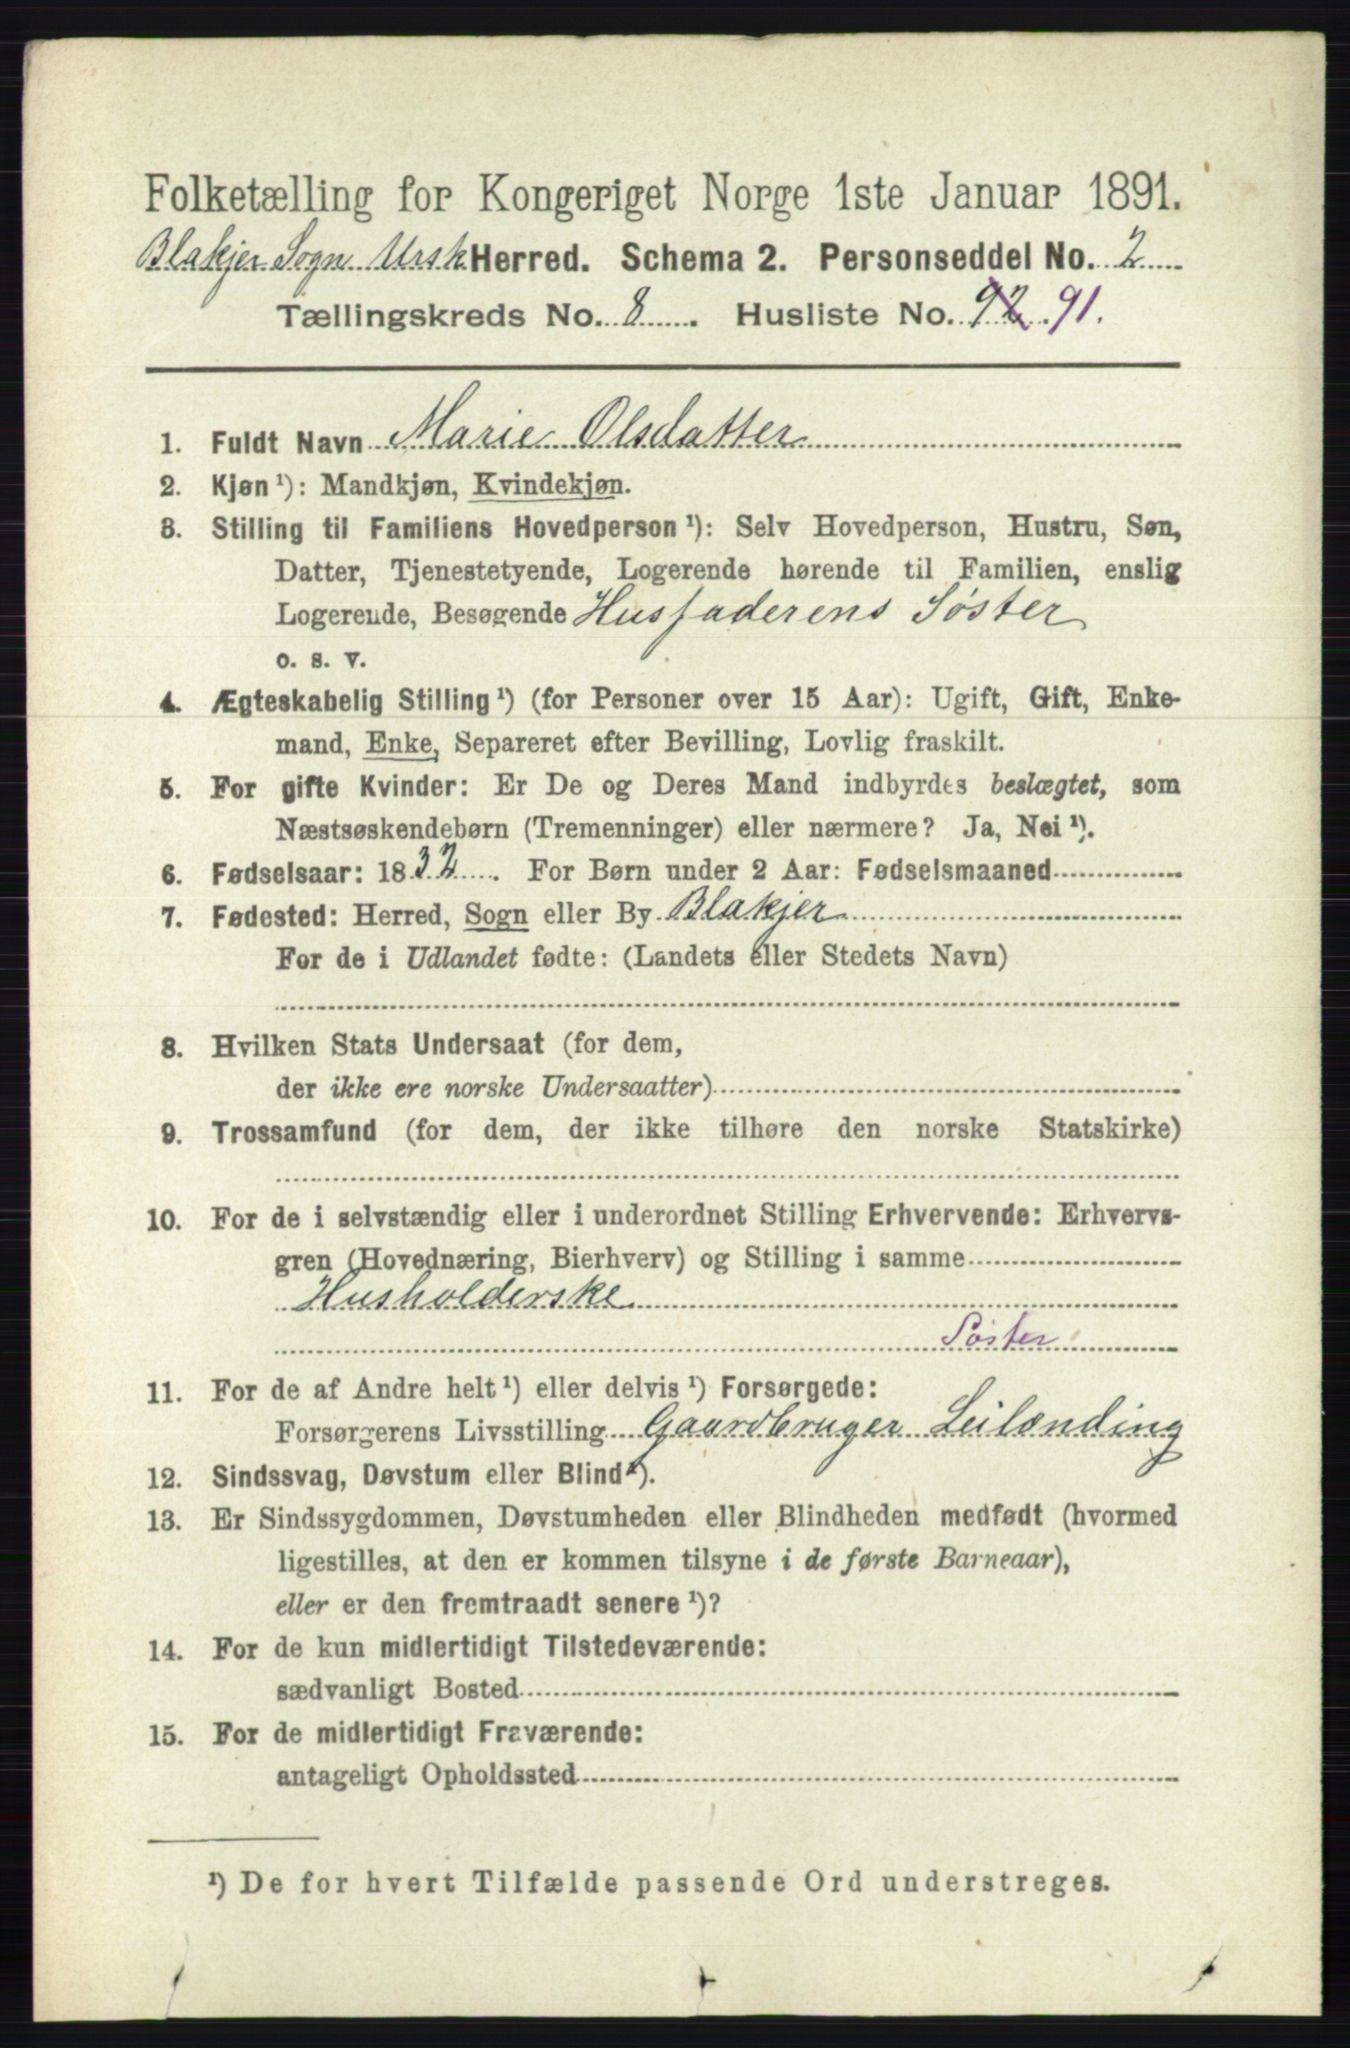 Folketælling for Kongeriget Norge 1ste Januar 1891.
Blakjer Sogn Ursk Herred. Schema 2. Personseddel No. 2
Tællingskreds No. 8. Husliste No. 92 91.
1. Fuldt Navn Marie Olsdatter
2. Kjøn ¹): Mandkjøn, Kvindekjøn.
3. Stilling til Familiens Hovedperson ¹): Selv Hovedperson, Hustru, Søn,
Datter, Tjenestetyende, Logerende hørende til Familien, enslig
Logerende, Besøgende Husfaderens Søster
o. s. v.
4. Ægteskabelig Stilling ¹) (for Personer over 15 Aar): Ugift, Gift, Enke-
mand, Enke, Separeret efter Bevilling, Lovlig fraskilt.
5. For gifte Kvinder: Er De og Deres Mand indbyrdes beslægtet, som
Næstsøskendebørn (Tremenninger) eller nærmere? Ja, Nei ¹).
6. Fødselsaar: 1832. For Børn under 2 Aar: Fødselsmaaned
7. Fødested: Herred, Sogn eller By Blakjer
For de i Udlandet fødte: (Landets eller Stedets Navn)
8. Hvilken Stats Undersaat (for dem,
der ikke ere norske Undersaatter)
9. Trossamfund (for dem, der ikke tilhøre den norske Statskirke)
10. For de i selvstændig eller i underordnet Stilling Erhvervende: Erhvervs-
gren (Hovednæring, Bierhverv) og Stilling i samme
Husholderske
Søster
11. For de af Andre helt ¹) eller delvis ¹) Forsørgede:
Forsørgerens Livsstilling Gaardbruger Leilænding
12. Sindssvag, Døvstum eller Blind ¹).
13. Er Sindssygdommen, Døvstumheden eller Blindheden medfødt (hvormed
ligestilles, at den er kommen tilsyne i de første Barneaar),
eller er den fremtraadt senere ¹)?
14. For de kun midlertidigt Tilstedeværende:
sædvanligt Bosted
15. For de midlertidigt Fraværende:
antageligt Opholdssted
¹) De for hvert Tilfælde passende Ord understreges.